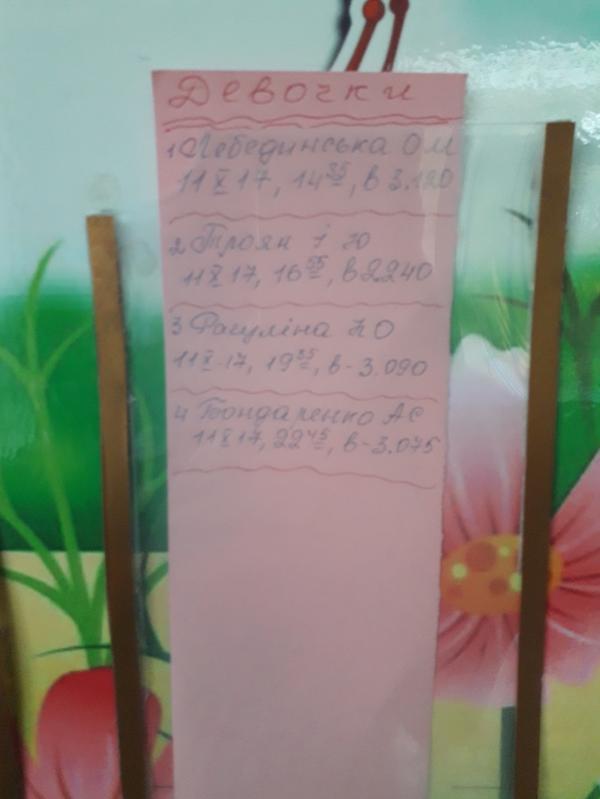 Девочки
1 Лебединська О М
11 X 17, 14 35, в 3.120
2 Троян І Ю
11 X 17, 16 55, в 2240
3 Рагуліна Н О
11 X-17, 19 35, в-3.090
4 Бондаренко А С
11 X 17, 22 45, в-3.075